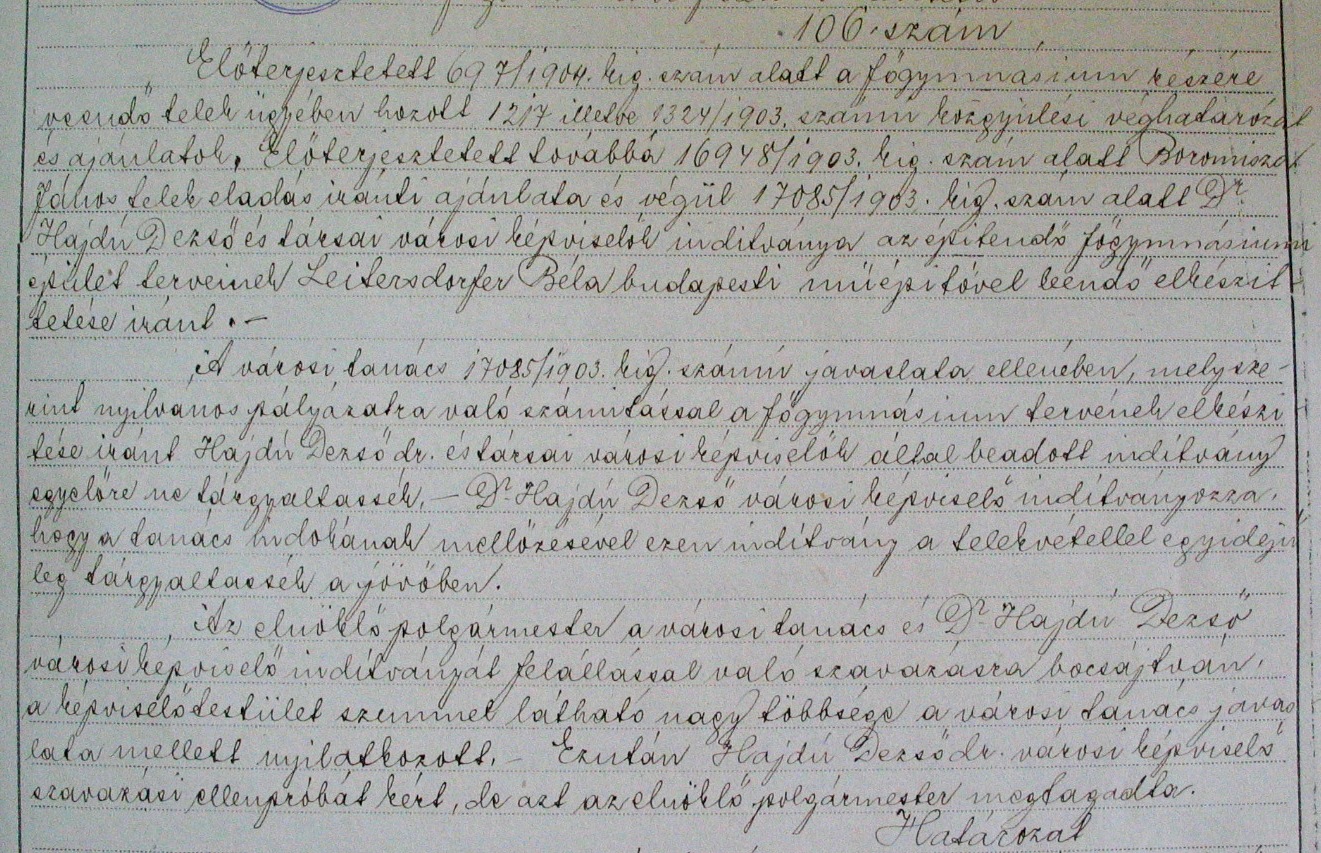 106. szám
Előterjesztetett 697/1904. kig. szám alatt a főgymnásium részére
veendő telek ügyében hozott 1217 illetve 1324/1903. számú közgyülési véghatározat
és ajánlatok. Előterjesztetett továbbá 16948/1903. kig. szám alatt Boromiszat
János telek eladás iránti ajánlata és végül 17085/1903. kig. szám alatt Dr.
Hajdú Dezső és társai városi képviselők inditványa az épitendő főgymnásiumi
épület terveinek Leitersdorfer Béla budapesti müépitővel leendő elkészit-
tetése iránt. —
A városi tanács 17085/1903. kig. számú javaslata ellenében, mely sze-
rint nyilvános pályázatra való számitással a főgymnásium tervének elkészi
tése iránt Hajdú Dezső dr. és társai városi képviselők által beadott indítvány
egyelőre ne tárgyaltassék. — Dr. Hajdú Dezső városi képviselő indítványozza,
hogy a tanács indokának mellőzésével ezen indítvány a telekvétellel egyidejü
leg tárgyaltassék a jövőben.
Az elnöklő polgármester a városi tanács és Dr. Hajdú Dezső
városi képviselő indítványát felállással való szavazásra bocsájtván,
a képviselőtestület szemmel látható nagy többsége a városi tanács javas
lata mellett nyilatkozott. — Ezután Hajdú Dezső dr. városi képviselő
szavazási ellenpróbát kért, de azt az elnöklő polgármester megtagadta.
Határozat